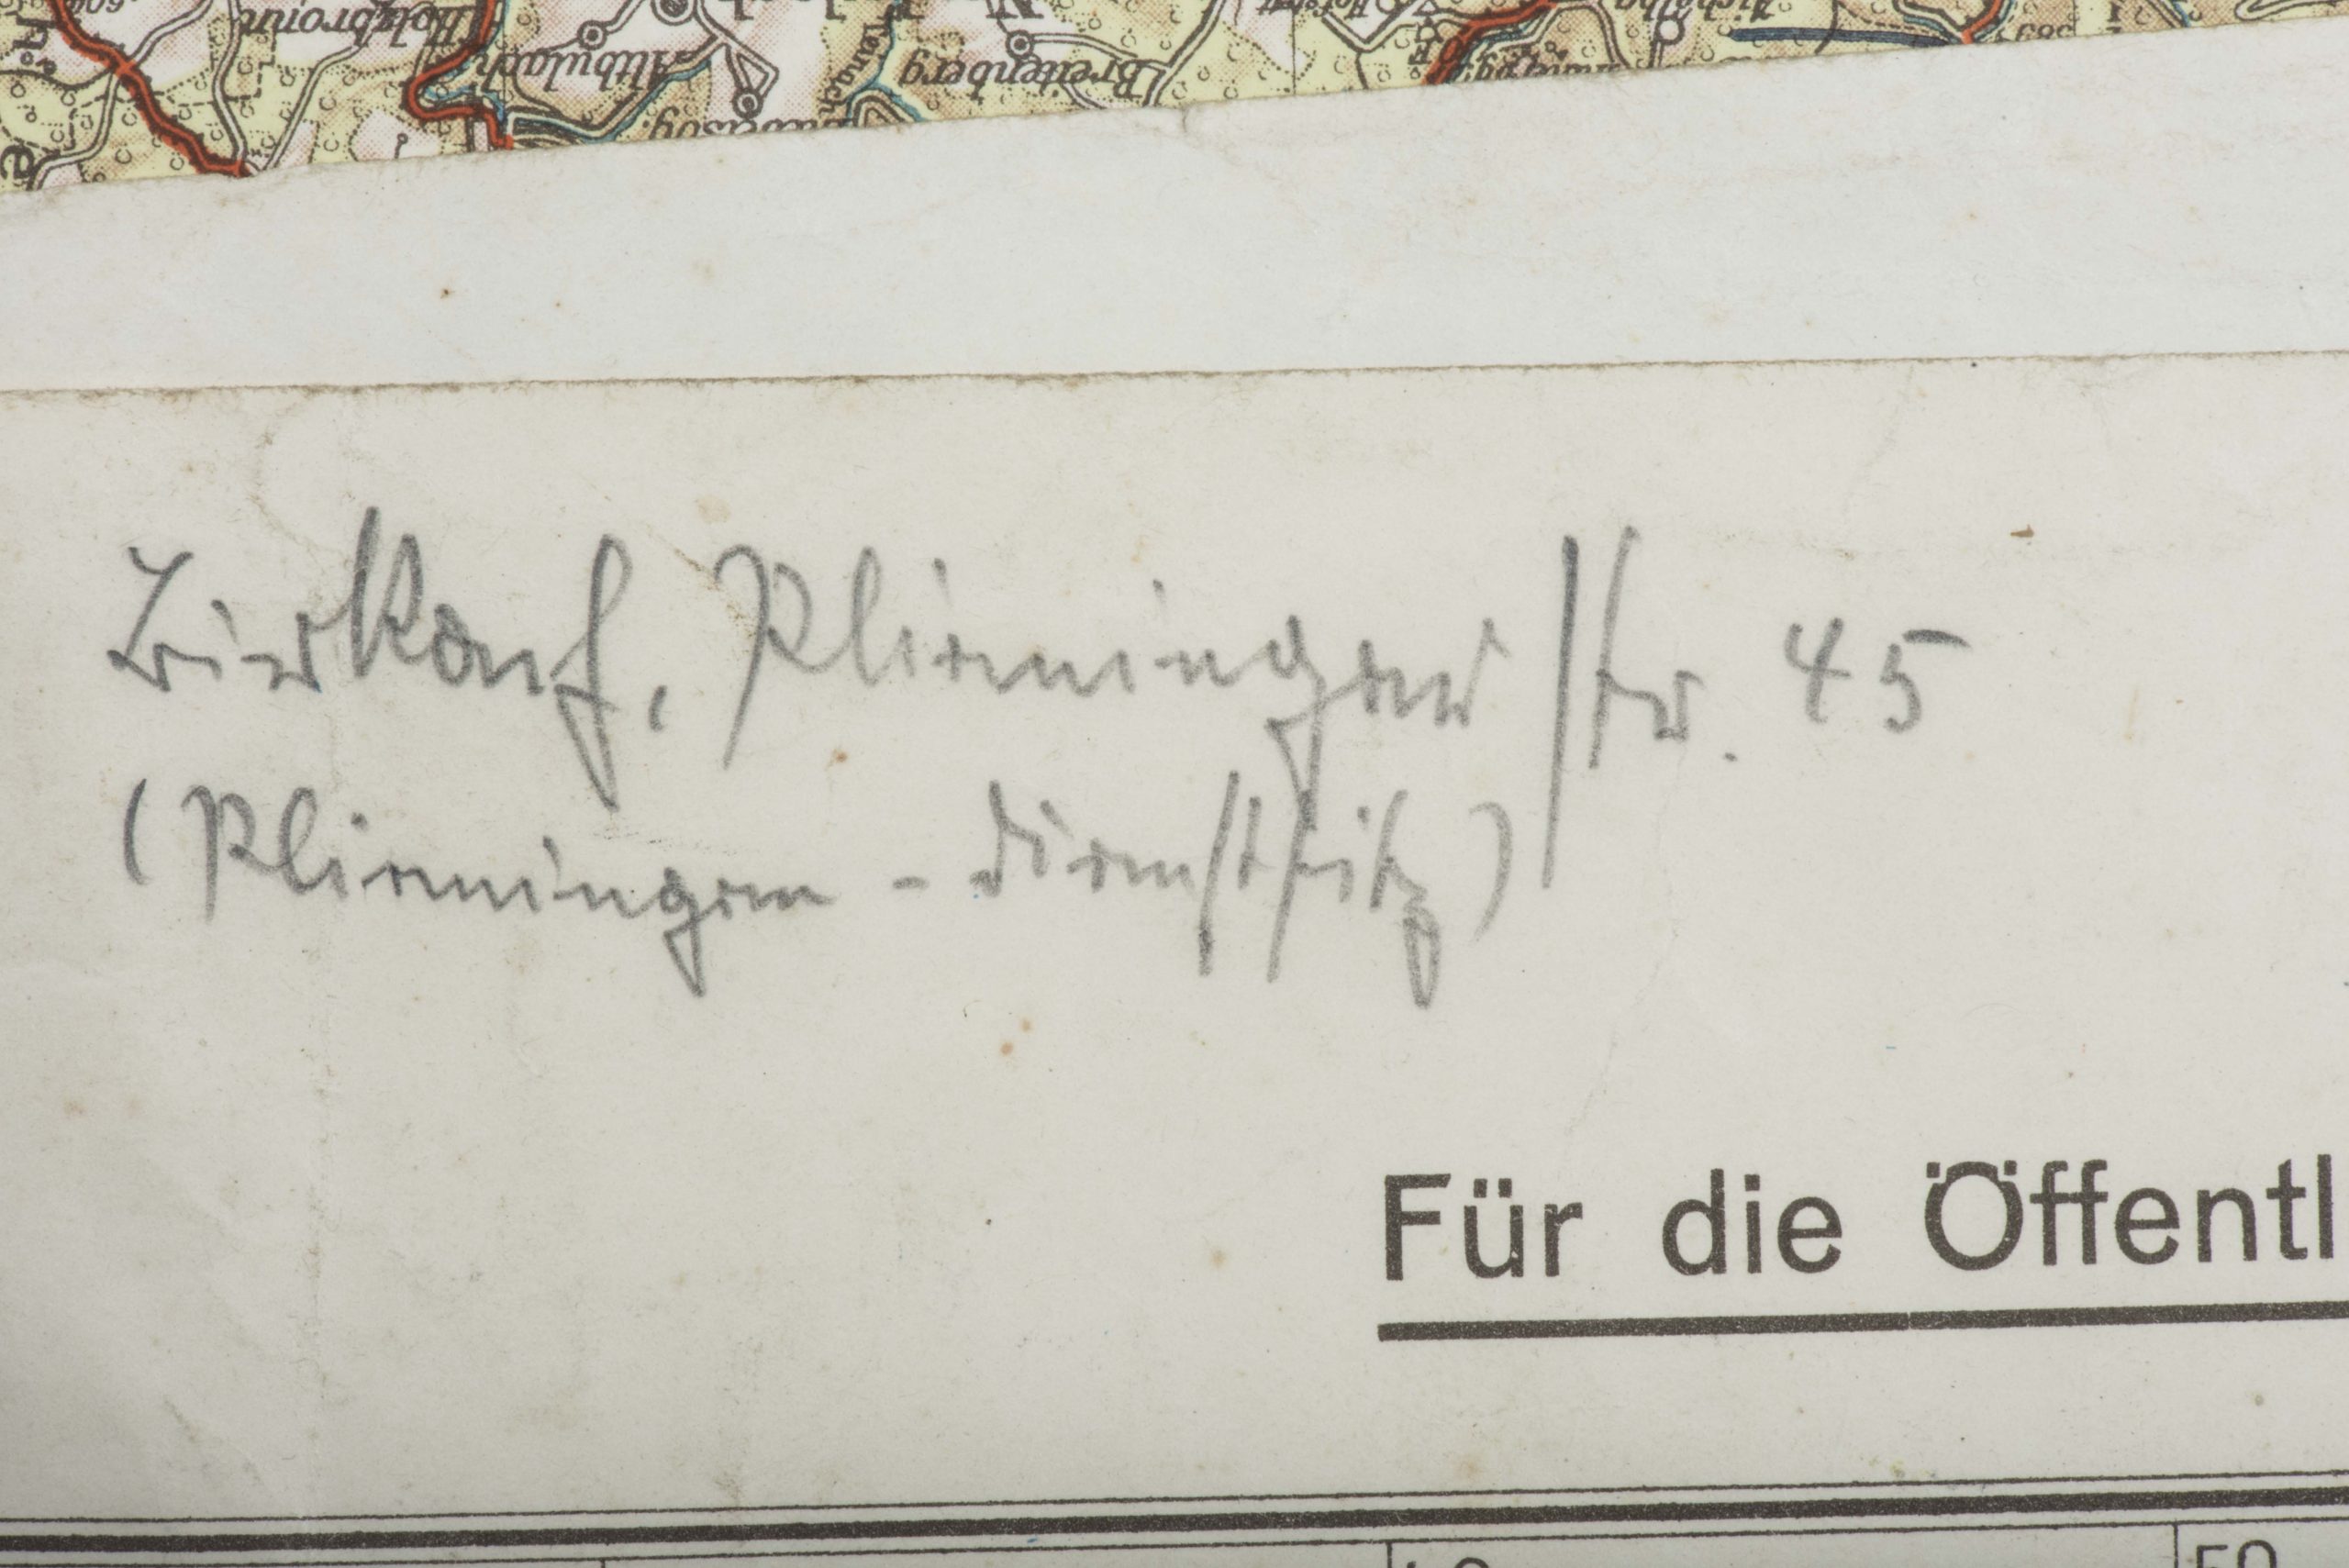 Holzbronn
Altbulach
Teinach
Breitenberg
Birkach, Plieninger Str. 45
(Plieningen - Dienstsitz)
Für die Öffentl